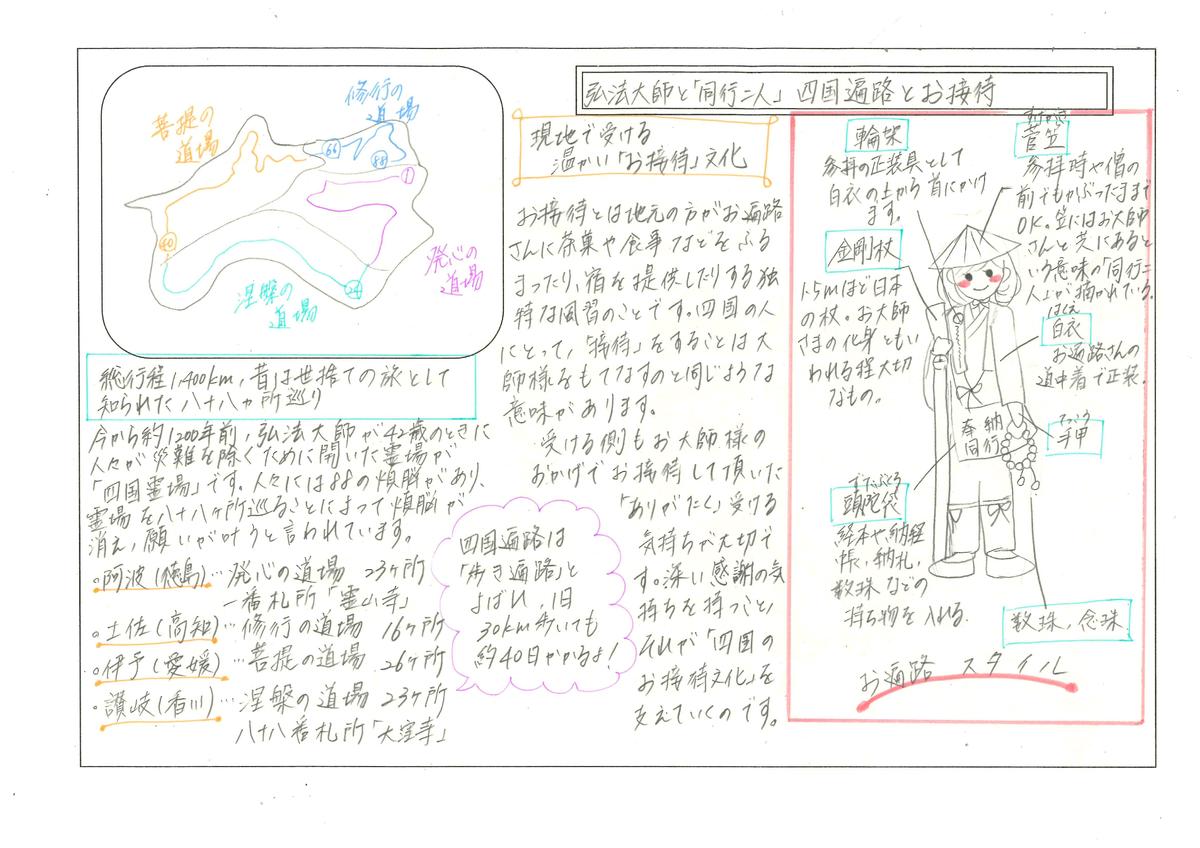 弘法大師と「同行二人」 四国遍路とお接待
菩提の
道場
修行の
道場
66
88
1
40
24
発心の
道場
涅槃の
道場
総行程1,400km,昔は世捨ての旅として
知られた八十八ヵ所巡り
今から約1200年前,弘法大師が42歳のときに
人々が災難を除くために開いた霊場が
「四国霊場」です。人々には88の煩脳があり、
霊場を八十八ヶ所巡ることによって煩脳が
消え,願いが叶うと言われています。
・阿波(徳島)…発心の道場 23ヶ所
一番札所「霊山寺」
・土佐(高知)…修行の道場 16ヶ所
・伊予(愛媛)…菩提の道場 26ヶ所
・讃岐(香川)…涅槃の道場 23ヶ所
八十八番札所「大窪寺」
四国遍路は
「歩き遍路」と
よばれ,1日
30km歩いても
約40日かかるよ!
現地で受ける
温かい「お接待」文化
お接待とは地元の方がお遍路
さんに茶菓や食事などをふる
まったり,宿を提供したりする独
特な風習のことです。四国の人
にとって,「接待」をすることは大
師様をもてなすのと同じような
意味があります。
受ける側もお大師様の
おかげでお接待して頂いた
「ありがたく」受ける
気持ちが大切で
す。深い感謝の気
持ちを持つこと,
それが「四国の
お接待文化」を
支えていくのです。
輪袈
参拝の正装具として
白衣の上から首にかけ
ます。
金剛杖
1.5mほど日本
の杖。お大師
さまの化身ともい
われる程大切
なもの。
すげがさ
菅笠
参拝時や僧の
前でもかぶったままで
OK。笠にはお大師
さんと共にあると
いう意味の「同行二
人」が描かれている。
はくえ
白衣
お遍路さんの
道中着で正装。
てっこう
手甲
奉納
同行
ずだぶくろ
頭陀袋
経本や,納経
帳,納札,
数珠などの
持ち物を入れる.
数珠,念珠.
お遍路スタイル